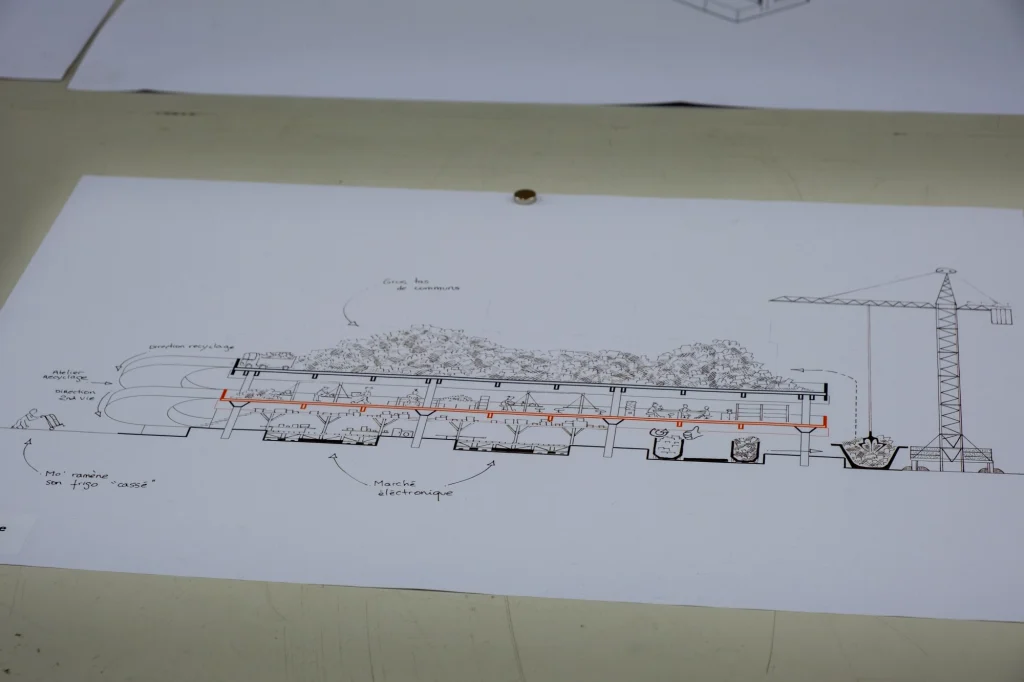 Gros tas
de communs
Direction recyclage
Atelier
Recyclage
Direction
2nd vie
Mo' ramène
son frigo "cassé"
Marché
électronique
e